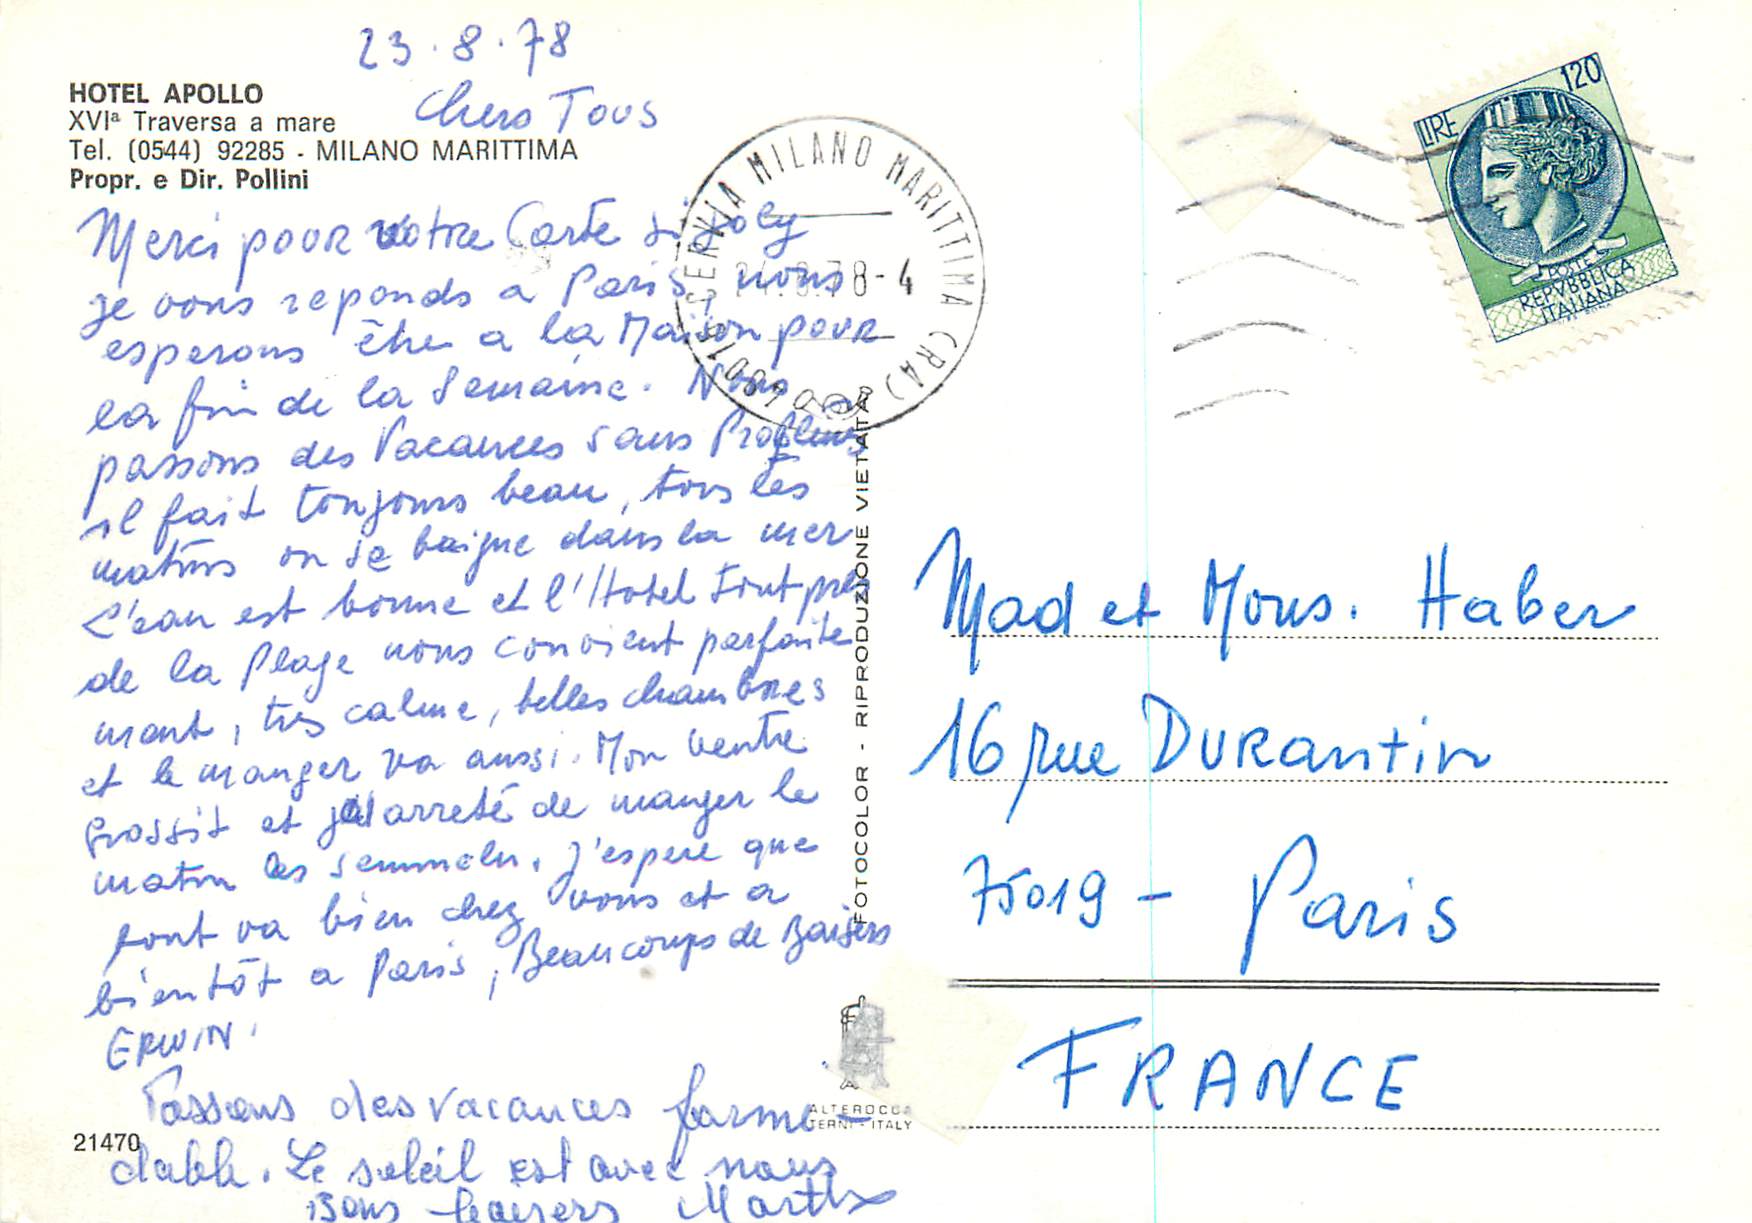 23.8.78
HOTEL APOLLO
XVIª Traversa a mare
Tel. (0544) 92285 - MILANO MARITTIMA
Propr. e Dir. Pollini
Chers Tous
Merci pour votre Carte si joly
je vous reponds a Paris, nous
esperons être a la Maison pour
la fin de la Semaine. Nous
passons des Vacances sans Problems
il fait toujours beau, tous les
matins on se baigne dans la mer
L'eau est bonne et l'Hotel tout pres
de la Plage nous convient parfaite
mant, tres calme, belles chambres
et le manger va aussi. Mon ventre
Grossit et j'ai arreté de manger le
matin les semmeln. J'espere que
tout va bien chez vous et a
bientôt a Paris, Beaucoups de Baisers
ERWIN.
Passons des vacances formi-
dable. Le soleil est avec nous
Bons baisers Marthe
21470
48016 CERVIA MILANO MARITTIMA (RA)
24.8.78-4
FOTOCOLOR - RIPRODUZIONE VIETATA
ALTEROCCA
TERNI - ITALY
LIRE 120
POSTE
REPVBBLICA
ITALIANA
Mad et Mons. Haber
16 rue DURantin
75019 - Paris
FRANCE